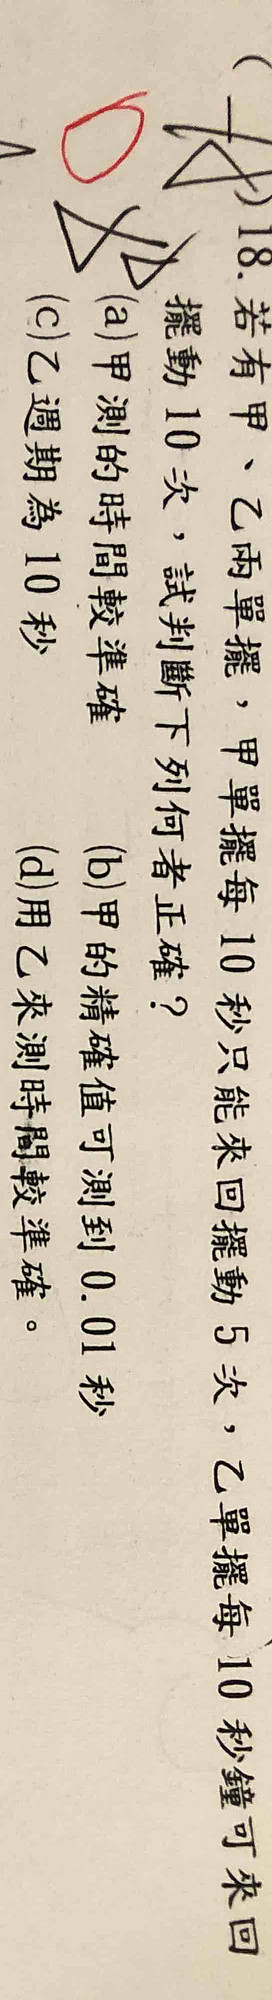 ( )18.若有甲、乙兩單擺,甲單擺每10秒只能來回擺動5次,乙單擺每10秒鐘可來回
擺動10次,試判斷下列何者正確?
(a)甲測的時間較準確 (b)甲的精確值可測到0.01秒
(c)乙週期為10秒 (d)用乙來測時間較準確。